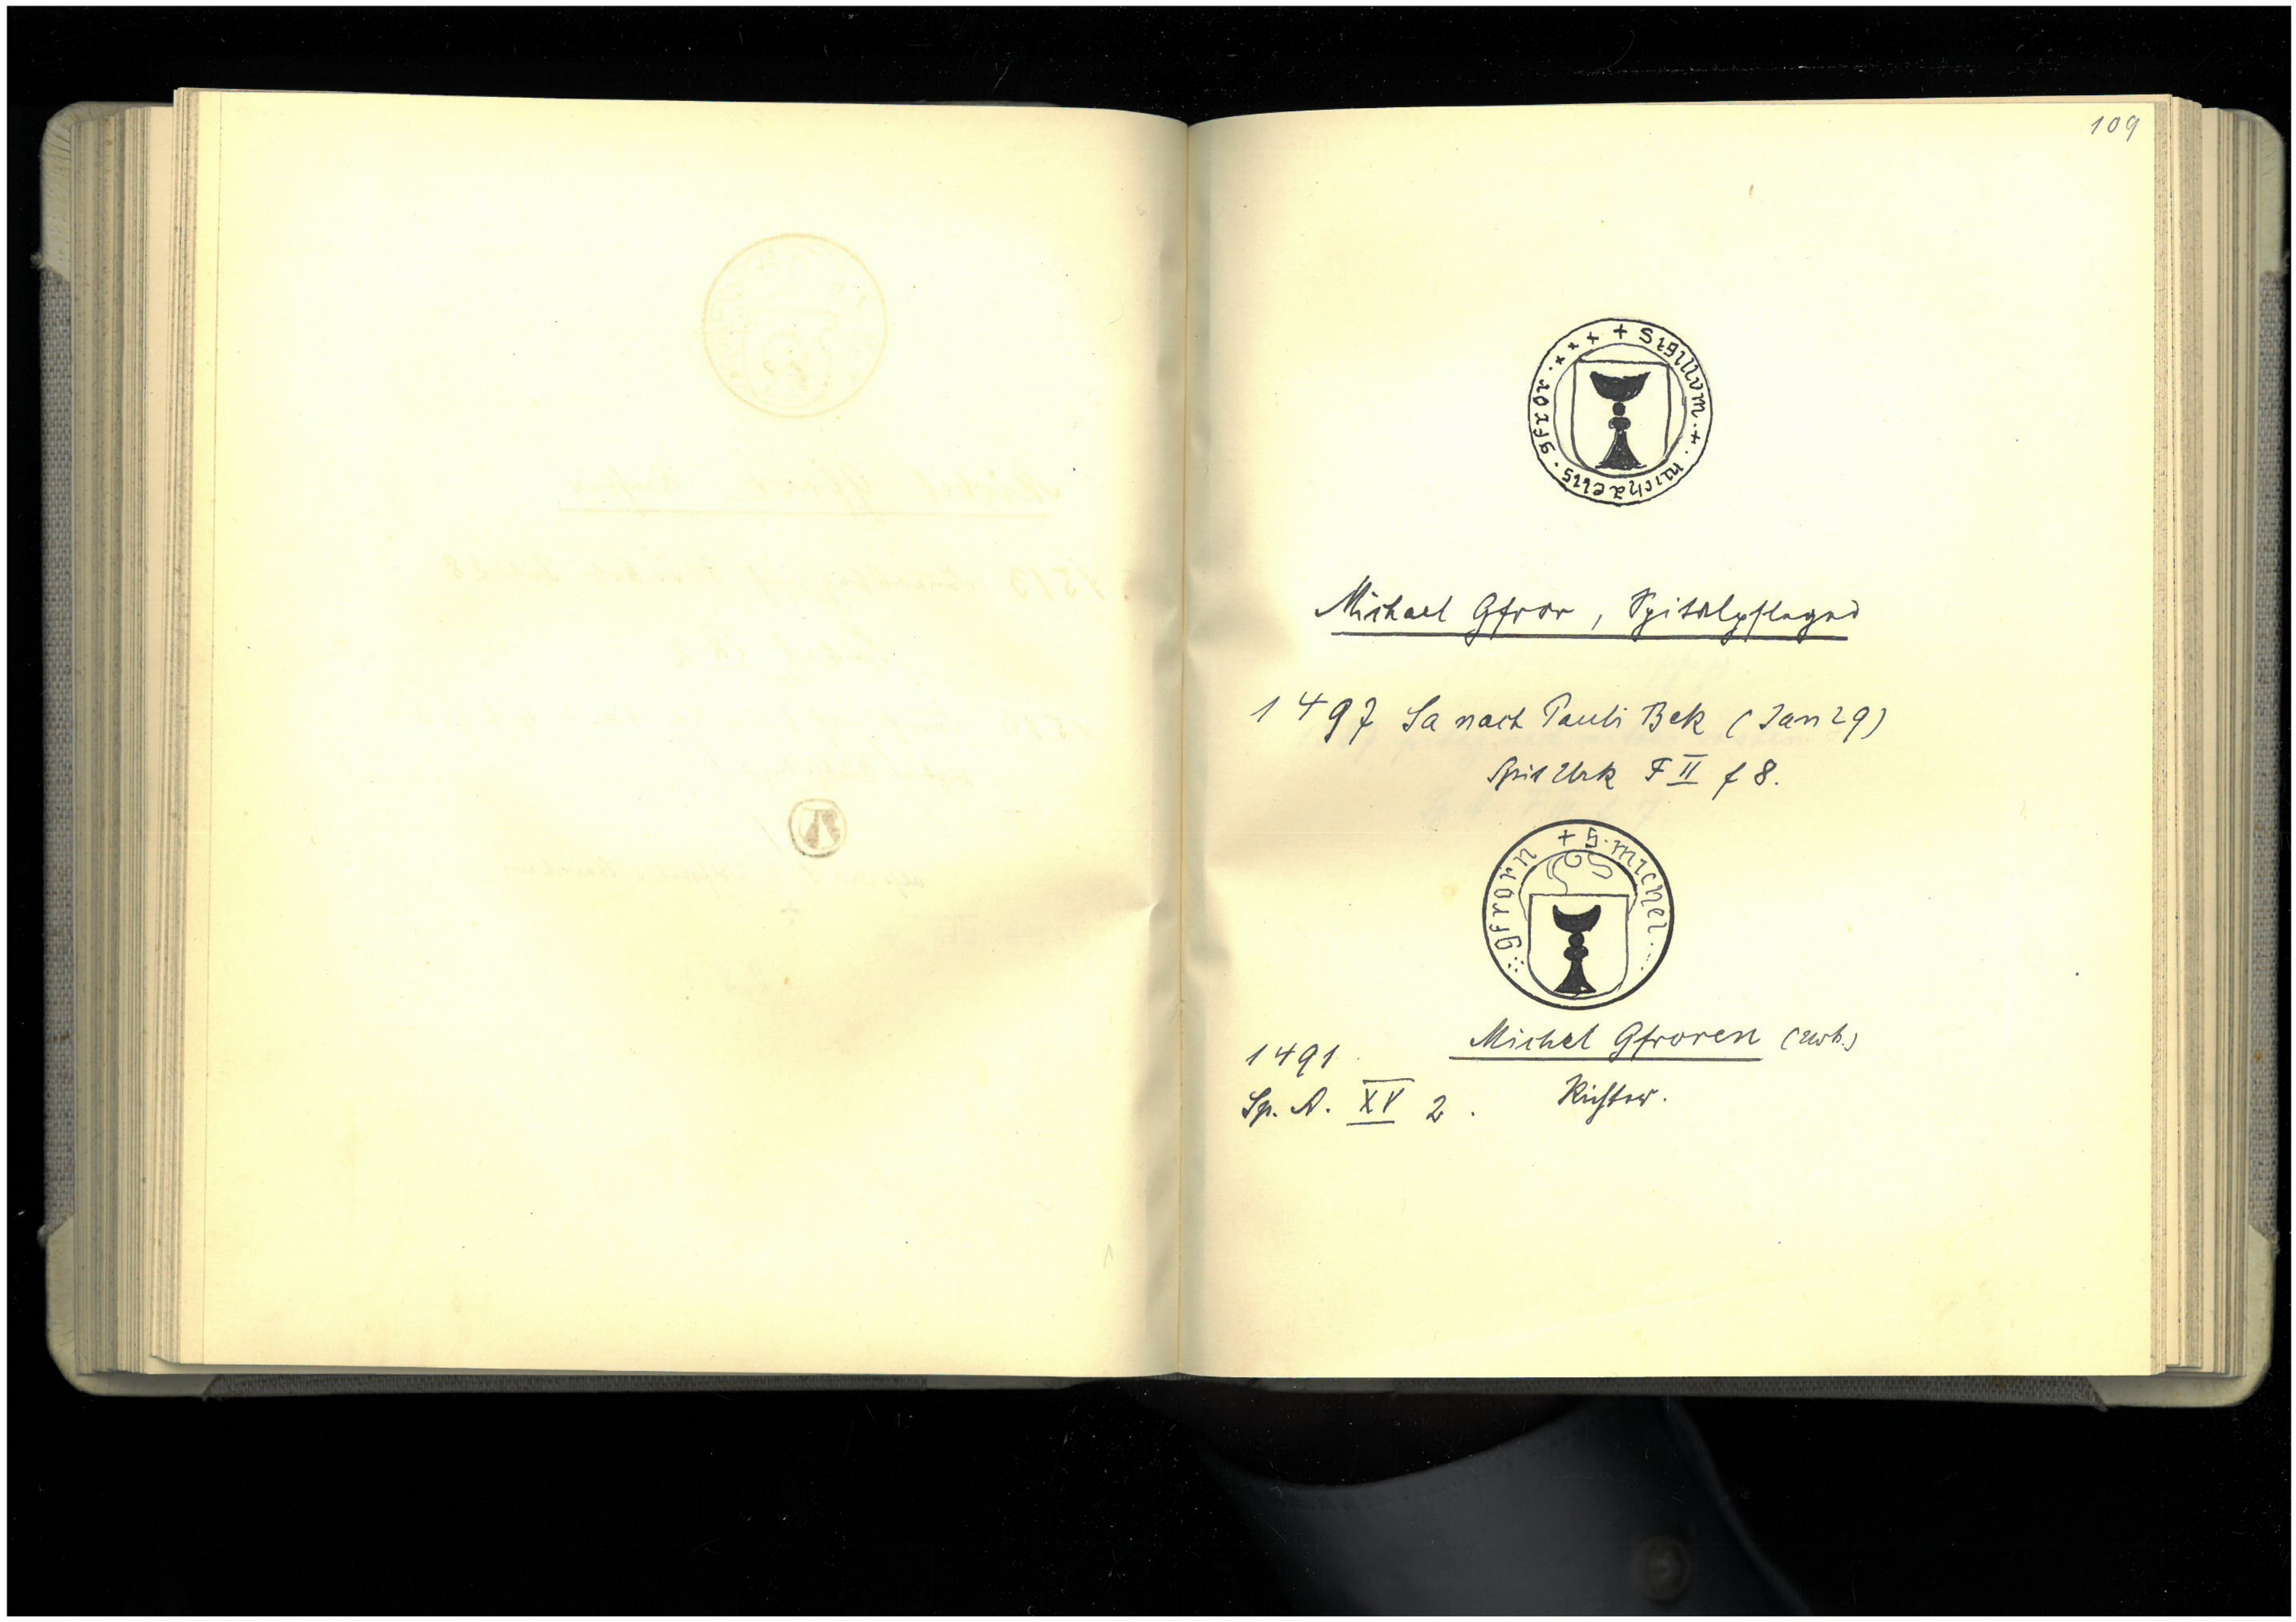 109
+ Sigillvm · + · michaelis · gfror · x x x
Michael Gfror, Spitalpfleger
1497 Sa nach Pauli Bek (Jan 29)
Spit Urk F II f 8.
+ S · michel · gfrorn
1491 Michel Gfroren (Urk.)
Sp. A. XV 2. Richter.